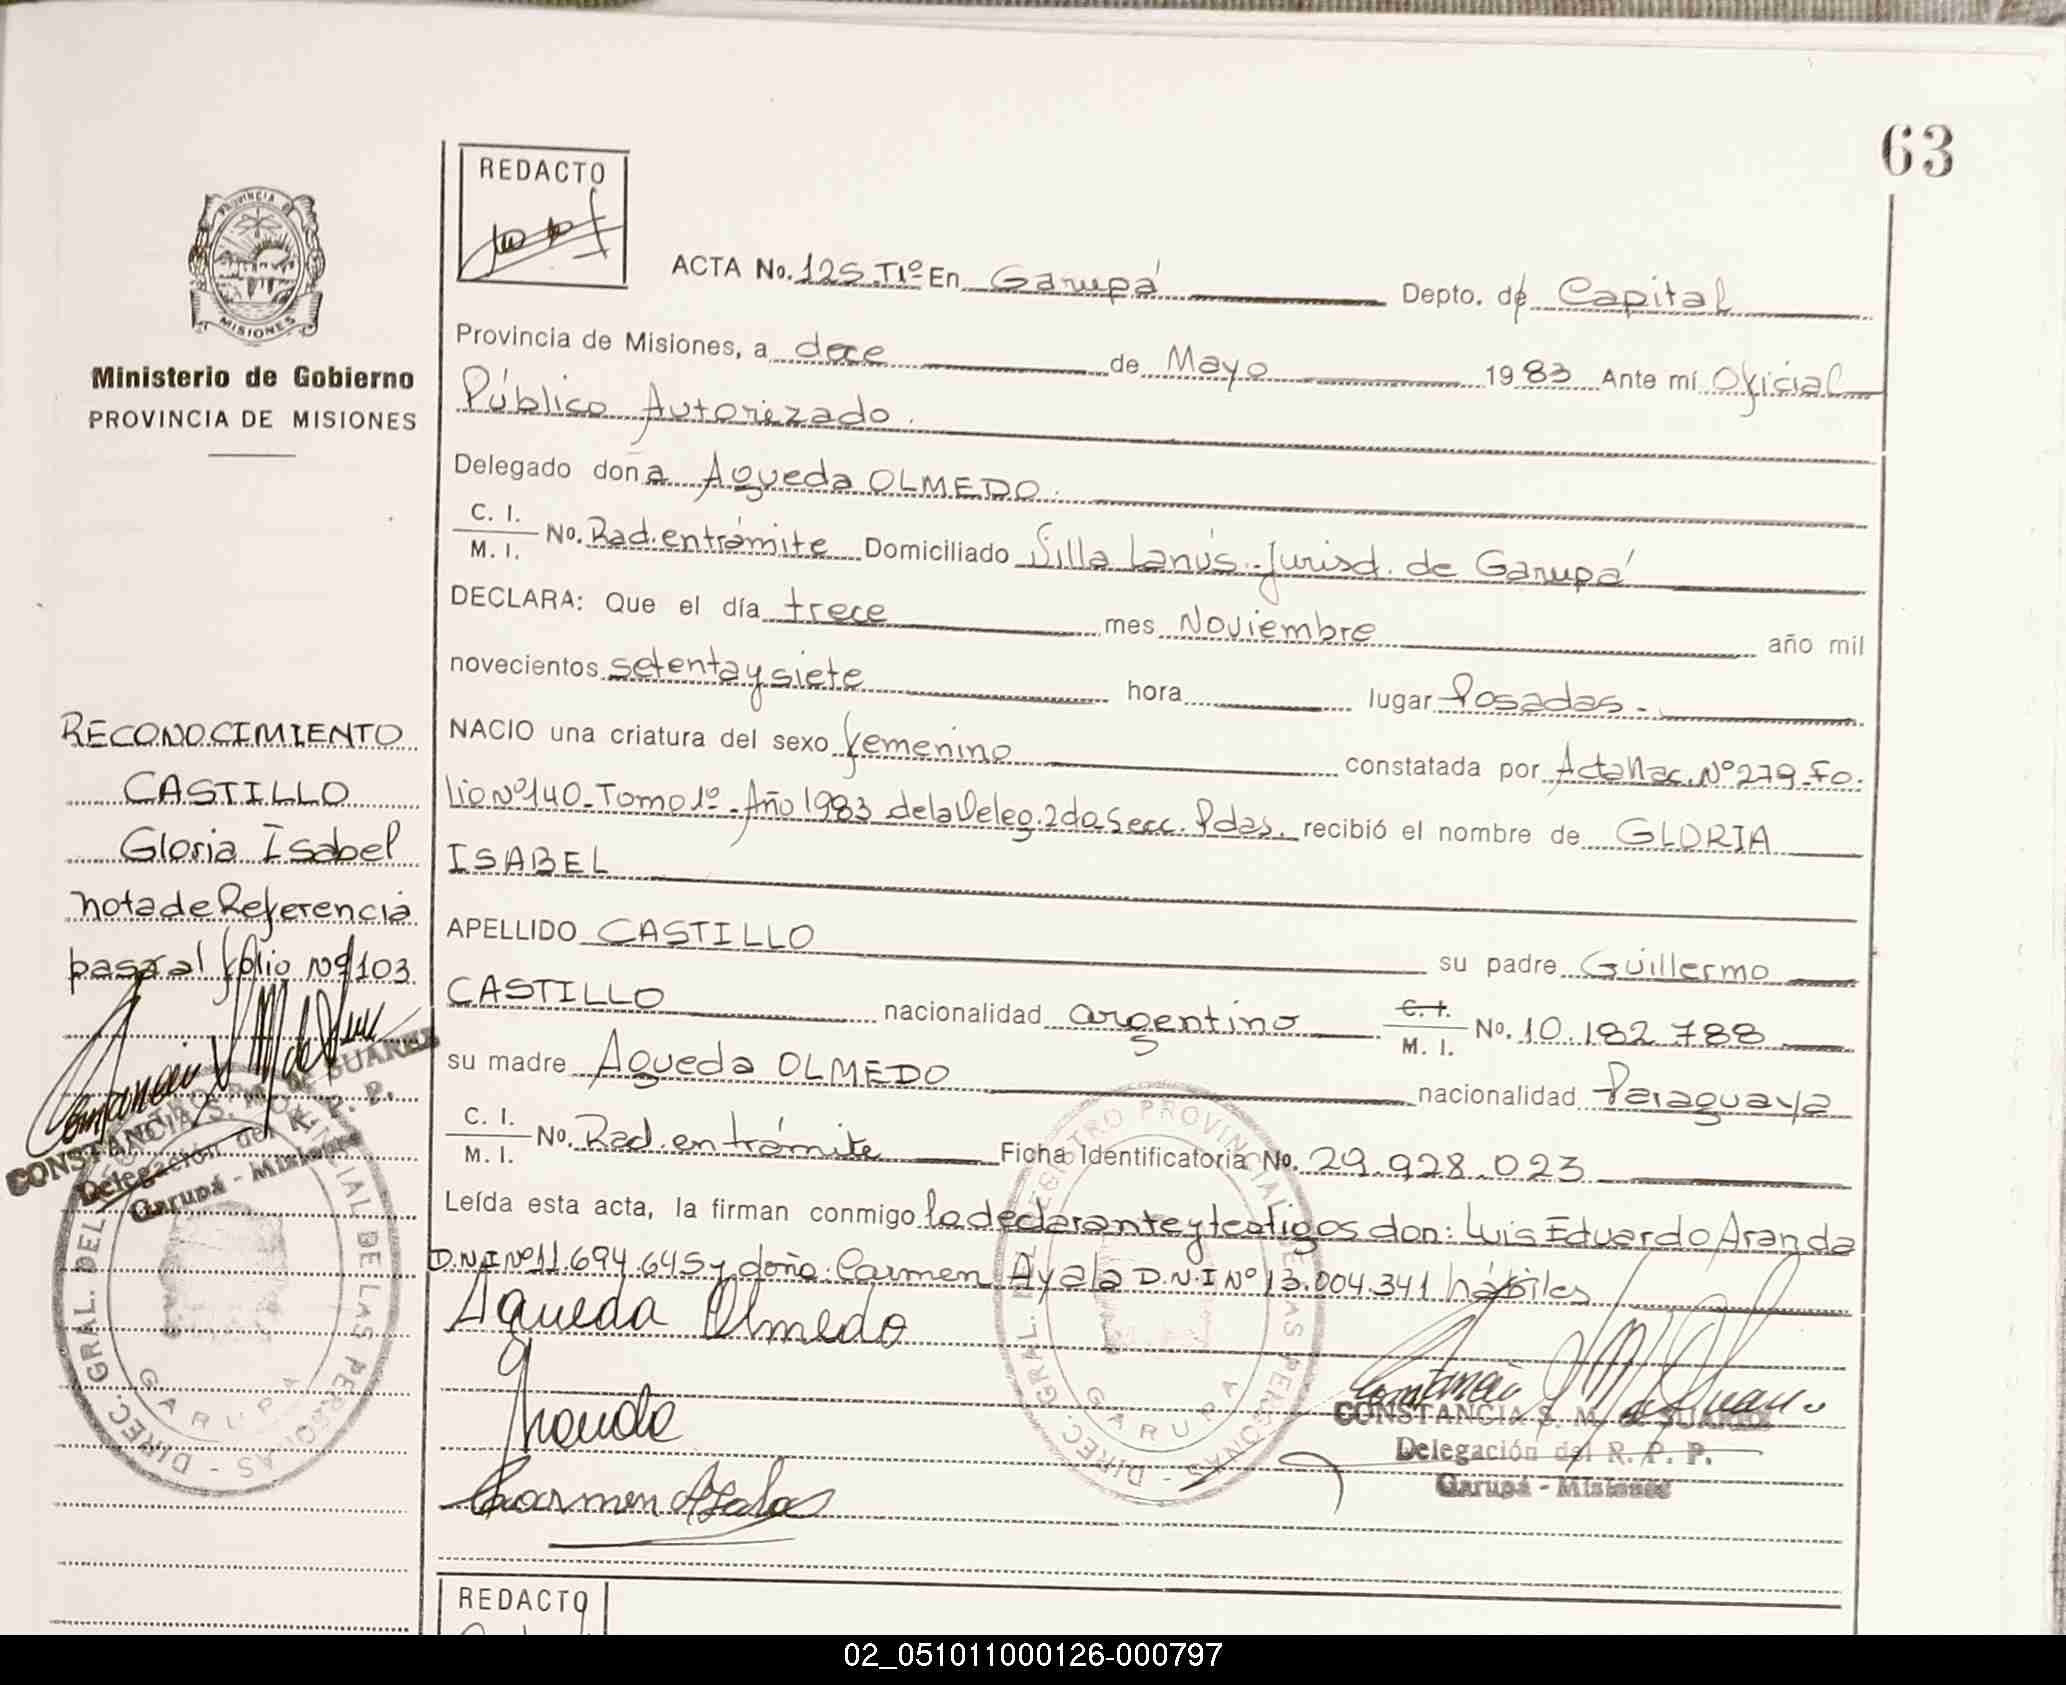 63
REDACTO
PROVINCIA DE
MISIONES
Ministerio de Gobierno
PROVINCIA DE MISIONES
ACTA No. 125.T1º En Garupá Depto. de Capital
Provincia de Misiones, a doce de Mayo 1983 Ante mí Oficial
Público Autorizado.
Delegado doña Agueda OLMEDO.
C. I.
M. I. No. Rad. en trámite Domiciliado Villa Lanús - Jurisd. de Garupá
DECLARA: Que el día trece mes Noviembre año mil
novecientos setenta y siete hora lugar Posadas.-
NACIO una criatura del sexo femenino constatada por Acta Nac. Nº 279 Fo.
lio Nº 140 - Tomo 1º - Año 1983 de la Deleg. 2da Secc. Pdas. recibió el nombre de GLORIA
ISABEL
APELLIDO CASTILLO su padre Guillermo
CASTILLO nacionalidad argentino C. I.
M. I. No. 10.182.788
su madre Agueda OLMEDO nacionalidad Paraguaya
C. I.
M. I. No. Rad. en trámite Ficha Identificatoria No. 29.928.023
Leída esta acta, la firman conmigo la declarante y testigos don: Luis Eduardo Aranda
D.N.I Nº 11.694.645 y doña: Carmen Ayala D.N.I Nº 13.004.341 hábiles
Agueda Olmedo
Carmen Ayala
CONSTANCIA S. M. de SUAREZ
Delegación del R. P. P.
Garupá - Misiones
DIREC. GRAL. DEL REGISTRO PROVINCIAL DE LAS PERSONAS -
GARUPA
RECONOCIMIENTO
CASTILLO
Gloria Isabel
nota de Referencia
pasar al folio Nº 103
CONSTANCIA S. M. de SUAREZ
Delegación del R. P. P.
Garupá - Misiones
DIREC. GRAL. DEL REGISTRO PROVINCIAL DE LAS PERSONAS -
GARUPA
REDACTO
02_051011000126-000797